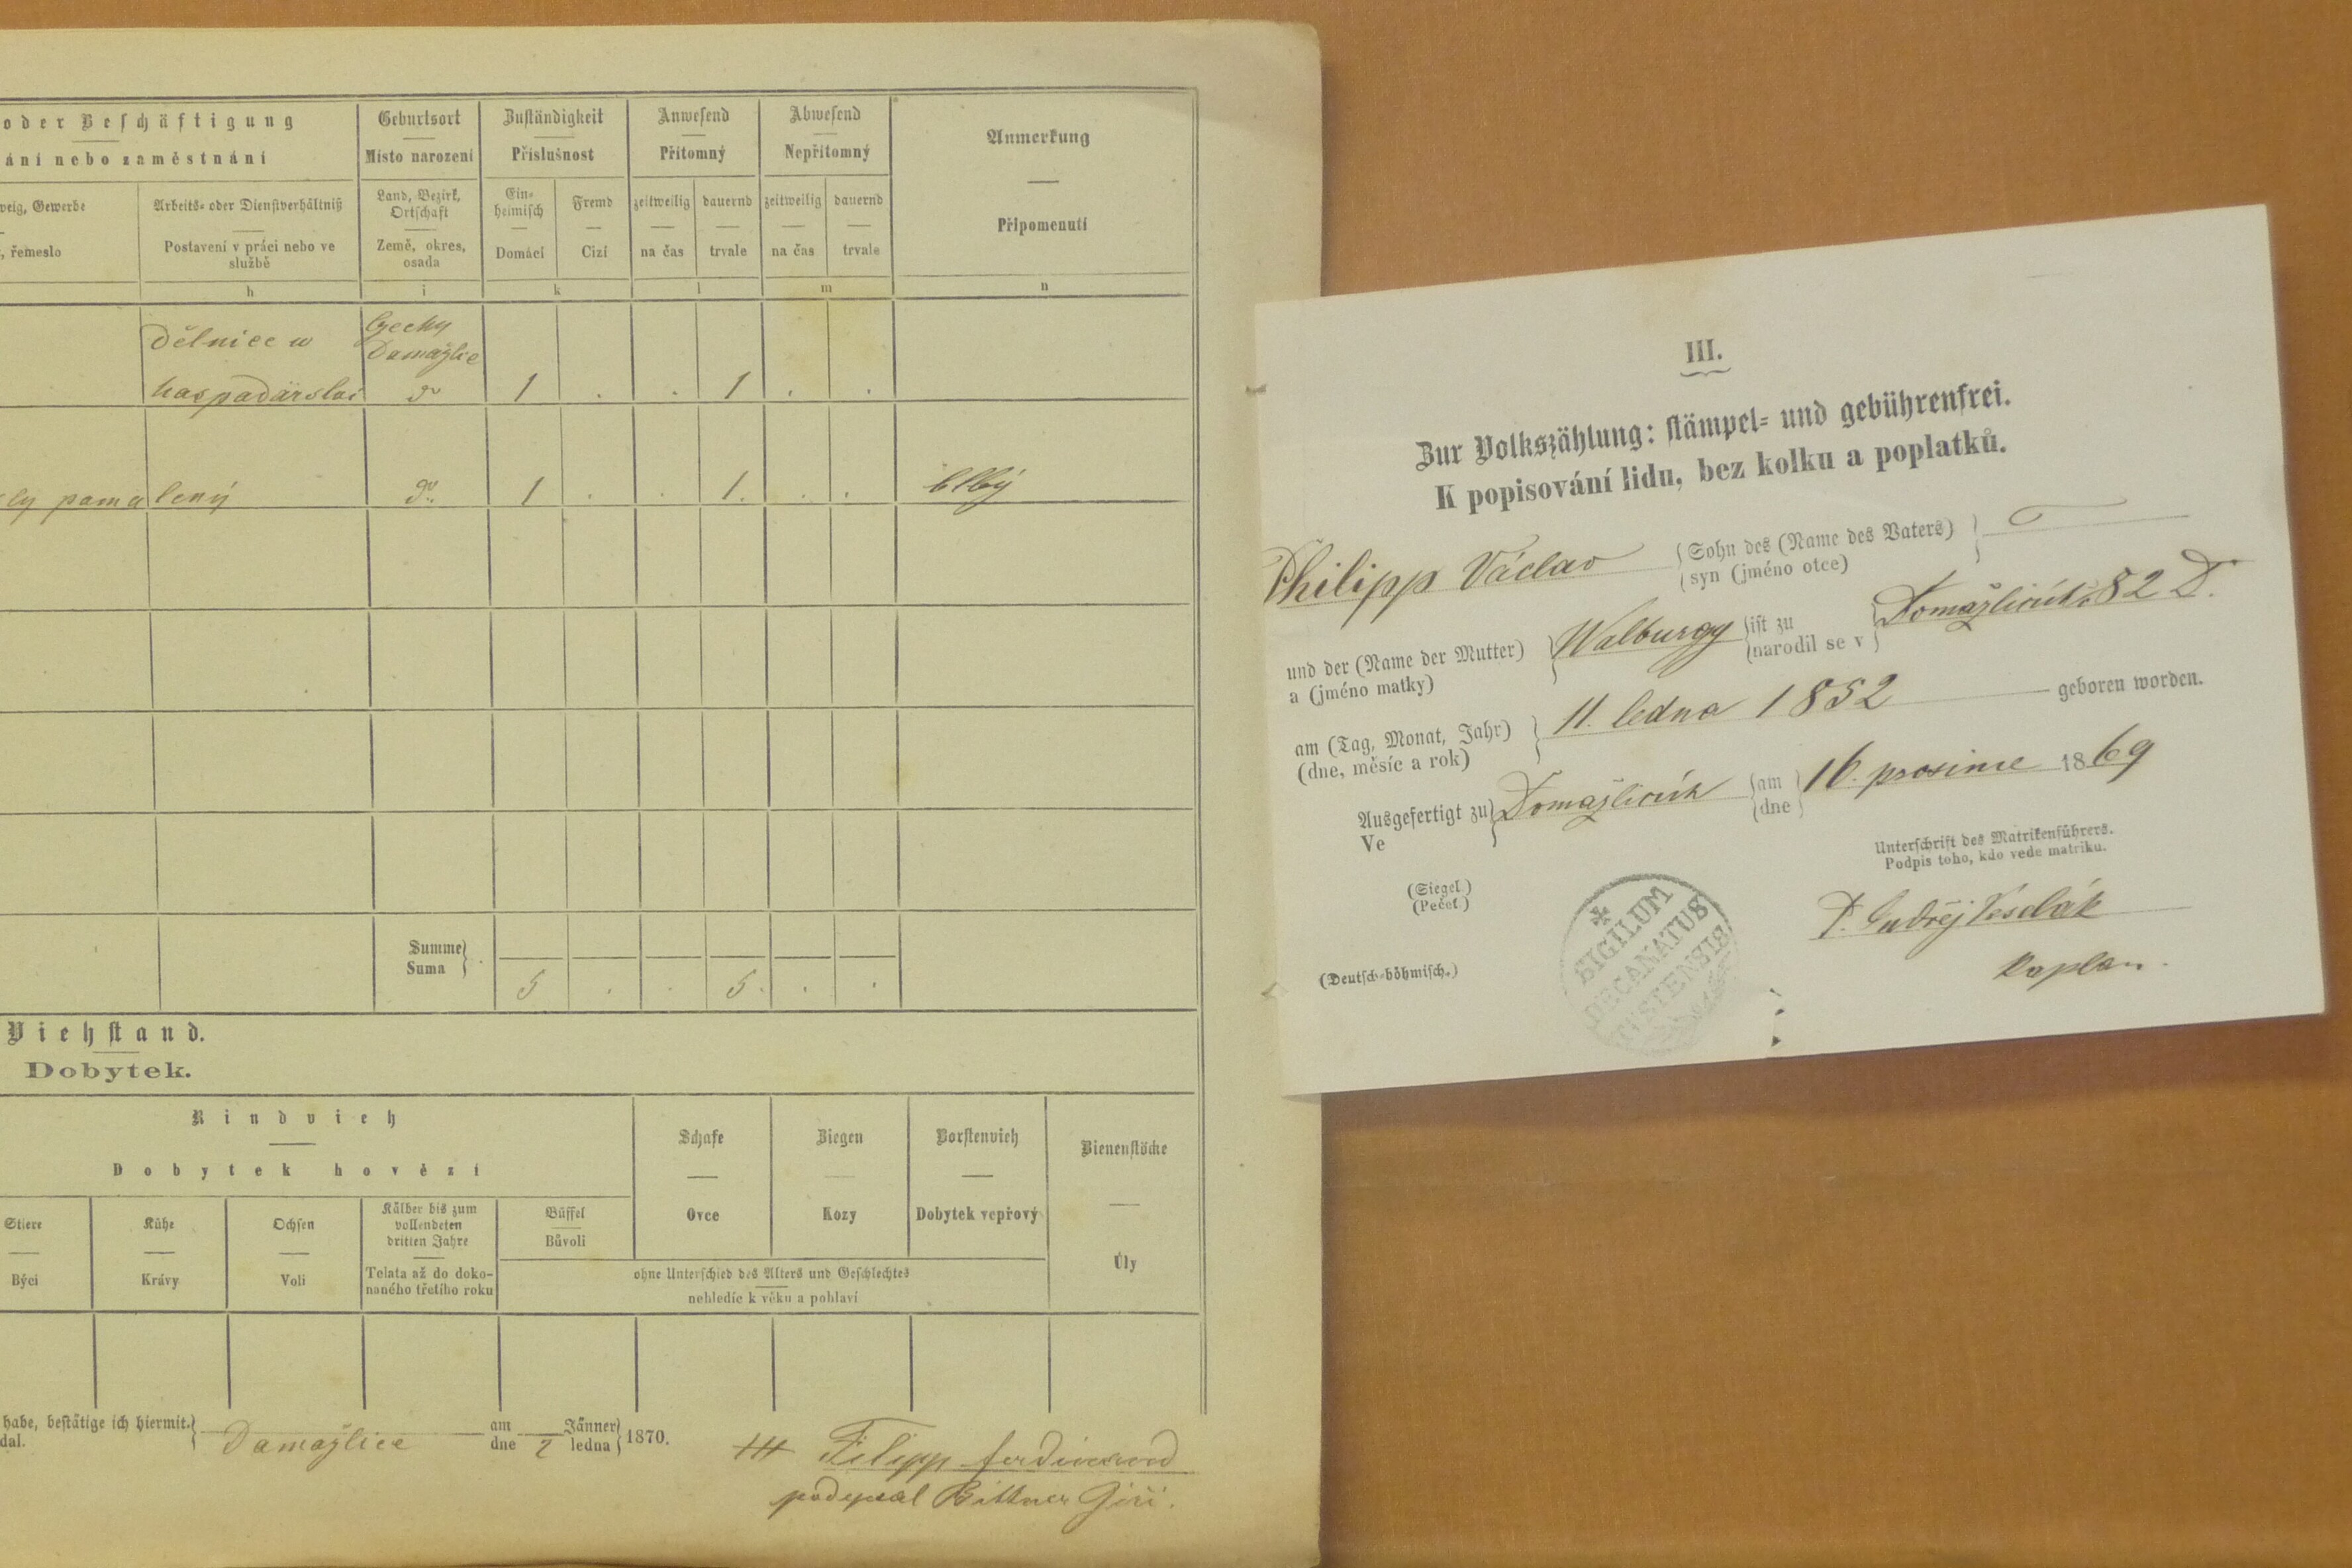 oder Beschäftigung
ání nebo zaměstnání
Geburtsort
Místo narození
Zuständigkeit
Příslušnost
Anwesend
Přítomný
Abwesend
Nepřítomný
Anmerkung
Připomenutí
weig, Gewerbe
, řemeslo
Arbeits- oder Dienstverhältniß
Postavení v práci nebo ve
službě
Land, Bezirk,
Ortschaft
Země, okres,
osada
Ein-
heimisch
Domácí
Fremd
Cizí
zeitweilig
na čas
dauernd
trvale
zeitweilig
na čas
dauernd
trvale
h i k l m n
dělnice w
Czechy
Damažlic
1 . . 1 . .
1 . . 1. . . blbý
Summe
Suma
5 . . 5. . .
Viehstand.
Dobytek.
Rindvieh
Dobytek hovězí
Schafe
Ovce
Ziegen
Kozy
Borstenvieh
Dobytek vepřový
Bienenstöcke
Úly
Stiere
Býci
Kühe
Krávy
Ochsen
Voli
Kälber bis zum
vollendeten
dritten Jahre
Telata až do doko-
naného třetího roku
Büffel
Bůvoli
ohne Unterschied des Alters und Geschlechtes
nehledíc k věku a pohlaví
habe, bestätige ich hiermit.
dal.
Damažlice am dne 2 Jänner ledna 1870.
+++ Filipp ferdinand
podepsal Bittner Jiří.
III.
Zur Volkszählung: stämpel- und gebührenfrei.
K popisování lidu, bez kolku a poplatků.
Philipp Václav
Sohn des (Name des Vaters)
syn (jméno otce)
und der (Name der Mutter)
a (jméno matky)
Walburgy
ist zu
narodil se v
82 D.
am (Tag, Monat, Jahr)
(dne, měsíc a rok)
11. ledna 1852 geboren worden.
Ausgefertigt zu
Ve
am
dne
16. prosince 1869
Unterschrift des Matrikenführers.
Podpis toho, kdo vede matriku.
(Siegel.)
(Pečeť.)
SIGILUM
DECANATUS
TUSTENSIS
kaplan.
(Deutsch-böhmisch.)